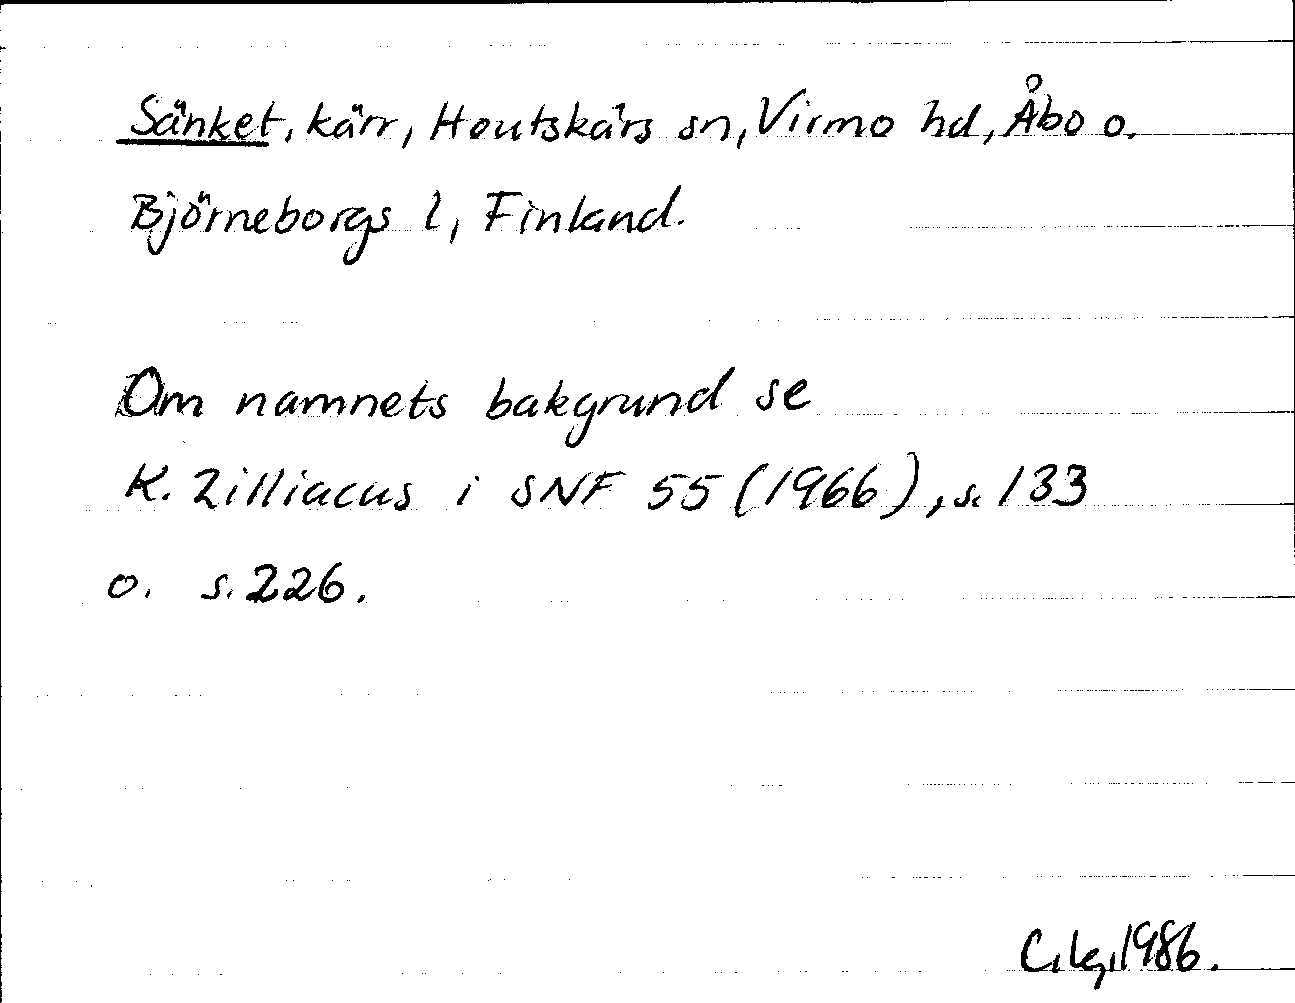 Sänket, kärr, Houtskärs sn, Virmo hd, Åbo o.
Björneborgs l, Finland.
Om namnets bakgrund se
K. Zilliacus i SNF 55 (1966), s. 133
o. s. 226.
1986.